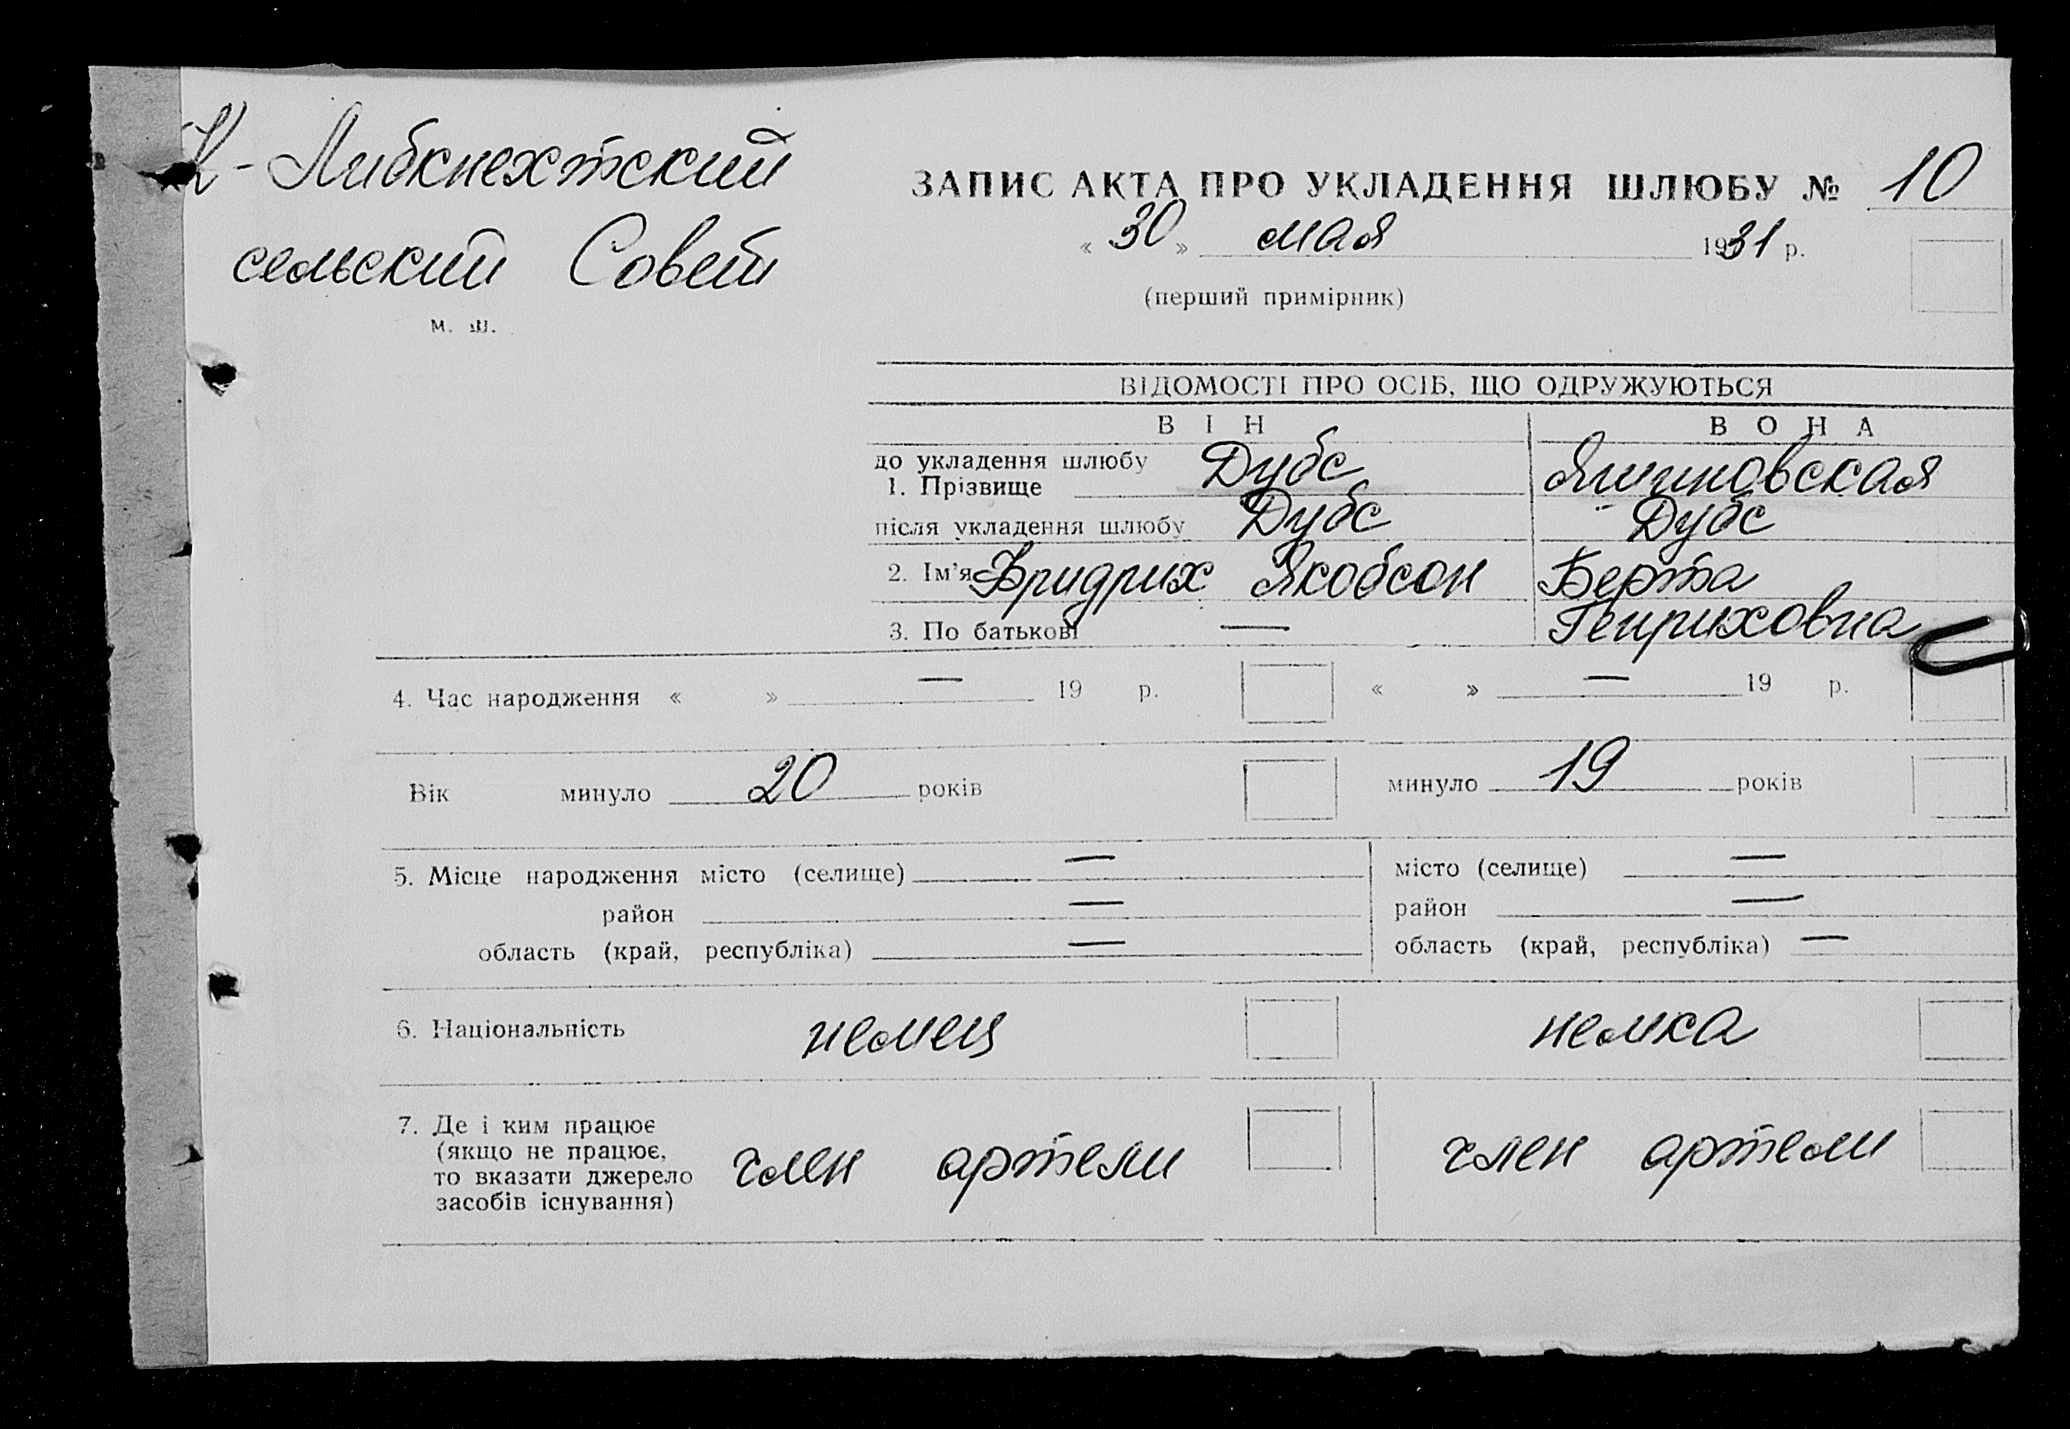 К-Либкнехтский
сельский Совет
м. ш.
ЗАПИС АКТА ПРО УКЛАДЕННЯ ШЛЮБУ № 10
« 30 » мая 1931 р.
(перший примірник)
ВІДОМОСТІ ПРО ОСІБ, ЩО ОДРУЖУЮТЬСЯ
ВІН ВОНА
до укладення шлюбу Дубс
1. Прізвище
після укладення шлюбу Дубс Дубс
2. Ім'я Фридрих Якобсон Берта
3. По батькові — Генриховна
4. Час народження « » — 19 р. « » — 19 р.
Вік минуло 20 років минуло 19 років
5. Місце народження місто (селище) — місто (селище) —
район — район —
область (край, республіка) — область (край, республіка) —
6. Національність немец немка
7. Де і ким працює
(якщо не працює,
то вказати джерело член артели член артели
засобів існування)